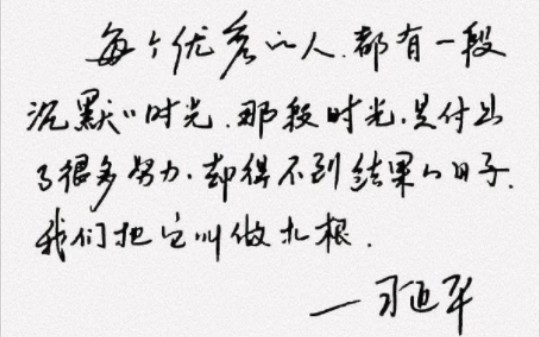 每个优秀的人.都有一段
沉默的时光.那段时光.是付出
了很多努力.却得不到结果的日子.
我们把它叫做扎根.
—习近平